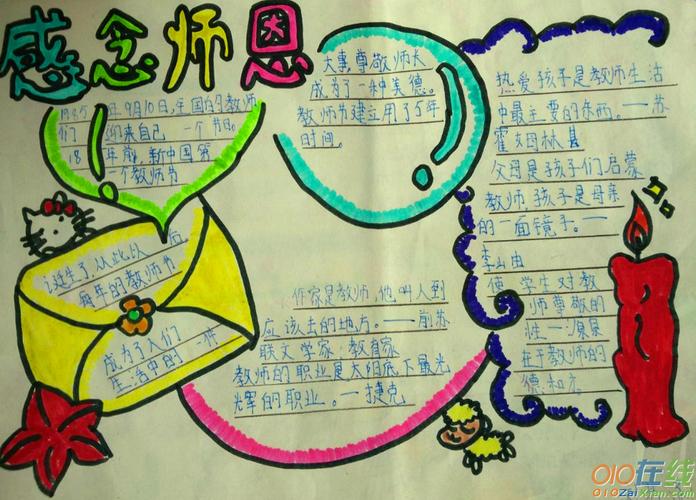 感念师恩
年9月10日,全国的教师
们 迎来自己 一个节日。
18年前,新中国第
一个教师节
诞生了,从此以后
每年的教师节
成为了人们
生活中的一件
大事,尊敬师长
成为了一种美德。
教师节建立用了5年
时间。
作家是教师,他叫人到
应该去的地方。——前苏
联文学家·教育家
教师的职业是太阳底下最光
辉的职业。——捷克
热爱孩子是教师生活
中最主要的东西。——苏
霍姆林
父母是孩子们启蒙
教师,孩子是母亲
的一面镜子。——
使 学生对教
师尊敬的
唯一源泉
在于教师的
德和才
010在线
010ZaiXian.com